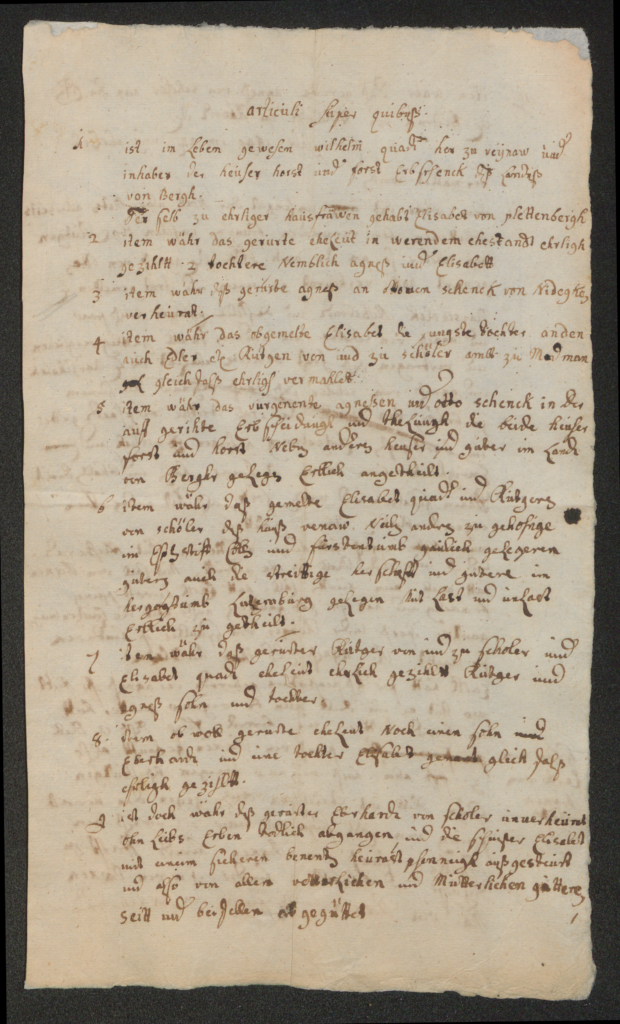 articuli super quibuß.
1 ist im Leben gewesen wilhelm quadt her zu reÿnaw und
inhaber der heuser horst und forst Erbschenck deß Landeß
von Bergh.
Der selb zu ehrliger hausfrawen gehabt Elisabet von plettenbergh
2 item wahr das gerurte eheleut in werendem ehestandt ehrligh
gezihltt 2 tochtere Nemblich agneß und Elisabett
3 item wahr daß gerurte agneß an ottonem schenck von Nideggen
verheurat.
4 item wahr das obgemelte Elisabet die jungste tochter an den
auch Edler etc Rutgen von und zu schöler
gleichfalß ehrligh vermahlet
5 item wahr das vurgenente agneßen und otto schenck in der
auff gerihte Erb und theilungh die beide heuser
forst und horst Neben anderen heuser und guter im Landt
von Bergh gelegen Erblich angetheilt.
6 item wahr daß gemelte Elisabet quadt und Rutgeren
von schöler deß hauß Neben andren zu gehorige
im Ertzstifft Cöllen und furstentumb gulich gelegenen
gutern auch die streittige herschafft und gutere im
hertzogtumb Lutzenburg gelegen mit Last und unlast
Erblich zu getheilt.
7 item wahr daß gerurter Rutger von und zu scholer und
Elizabet quadt eheleut ehrlich gezihlet Rutger und
agneß sohn und tochter
8. item ob woll gerurte eheleut Noch einen sohn
Eberhardt und eine tochter Elisabet genant gleich falß
ehrligh gezihltt.
9 ist doch wahr daß gerurter Eberhardt von scholer unverheurat
ohn Leibs Erben todlich abgangen und die schwester Elisabet
mit einem sicheren benenten heurat pfenningh außgesteurt
und also von allen vatterlichen und Mutterlichen gutteren
seitt und abgegüttet